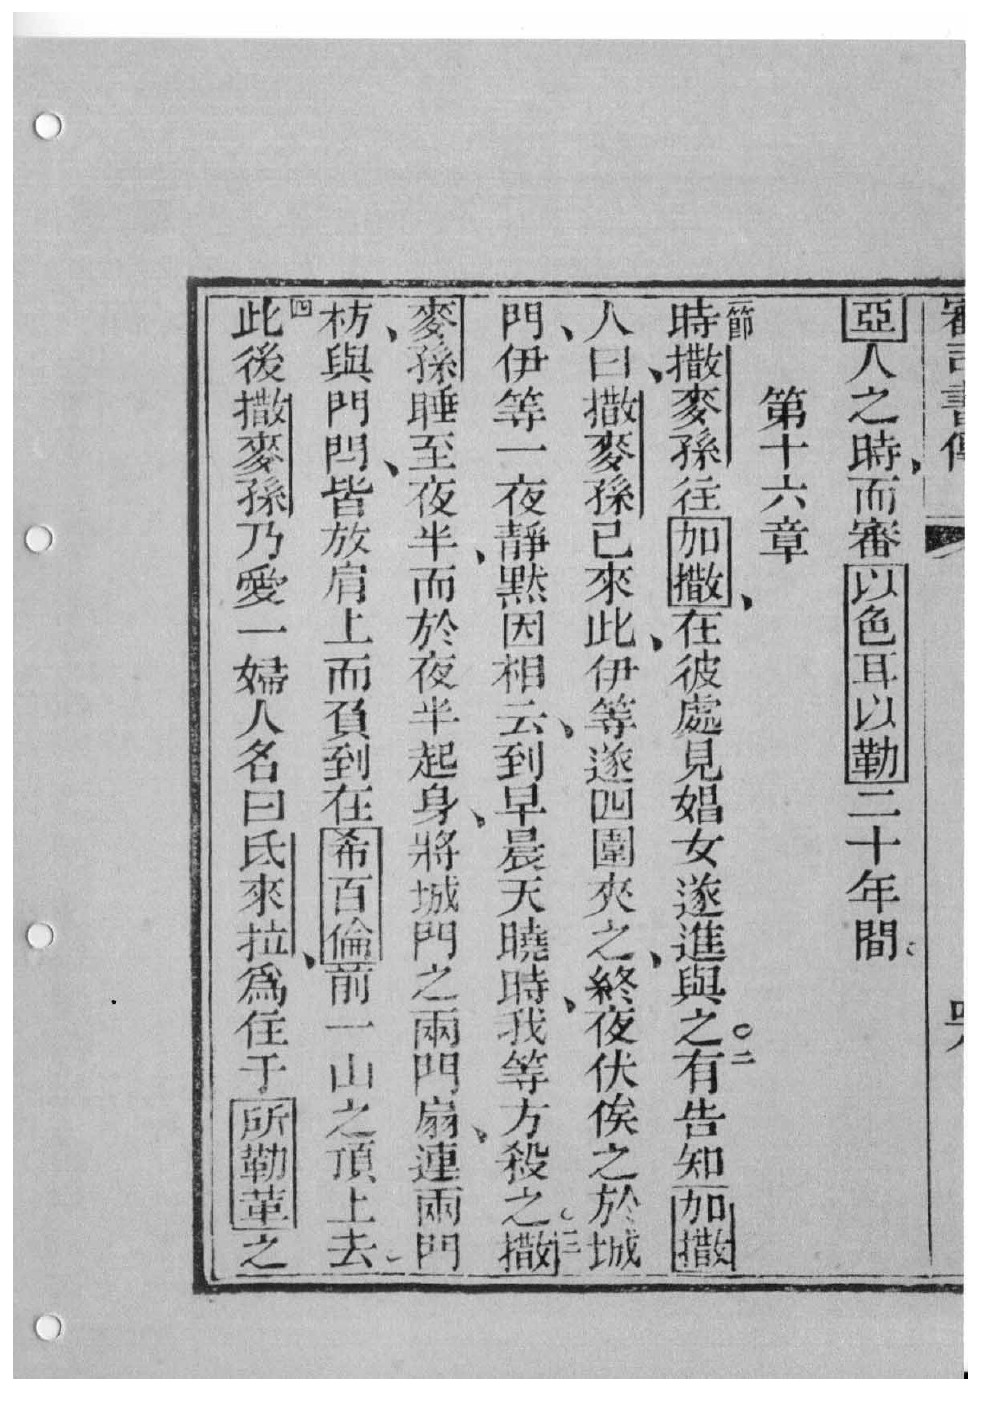 審司書傳
亞人之時而審以色耳以勒二十年間
第十六章
一節時撒麥孫往加撒在彼處見娼女遂進與之○二有告知加撒
人曰撒麥孫已來此伊等遂四圍夾之終夜伏俟之於城
門伊等一夜靜黙因相云到早晨天曉時我等方殺之○三撒
麥孫睡至夜半而於夜半起身將城門之兩門扇連兩門
枋與門閂皆放肩上而負到在希百倫前一山之頂上去
四此後撒麥孫乃愛一婦人名曰氐來拉爲住于所勒革之